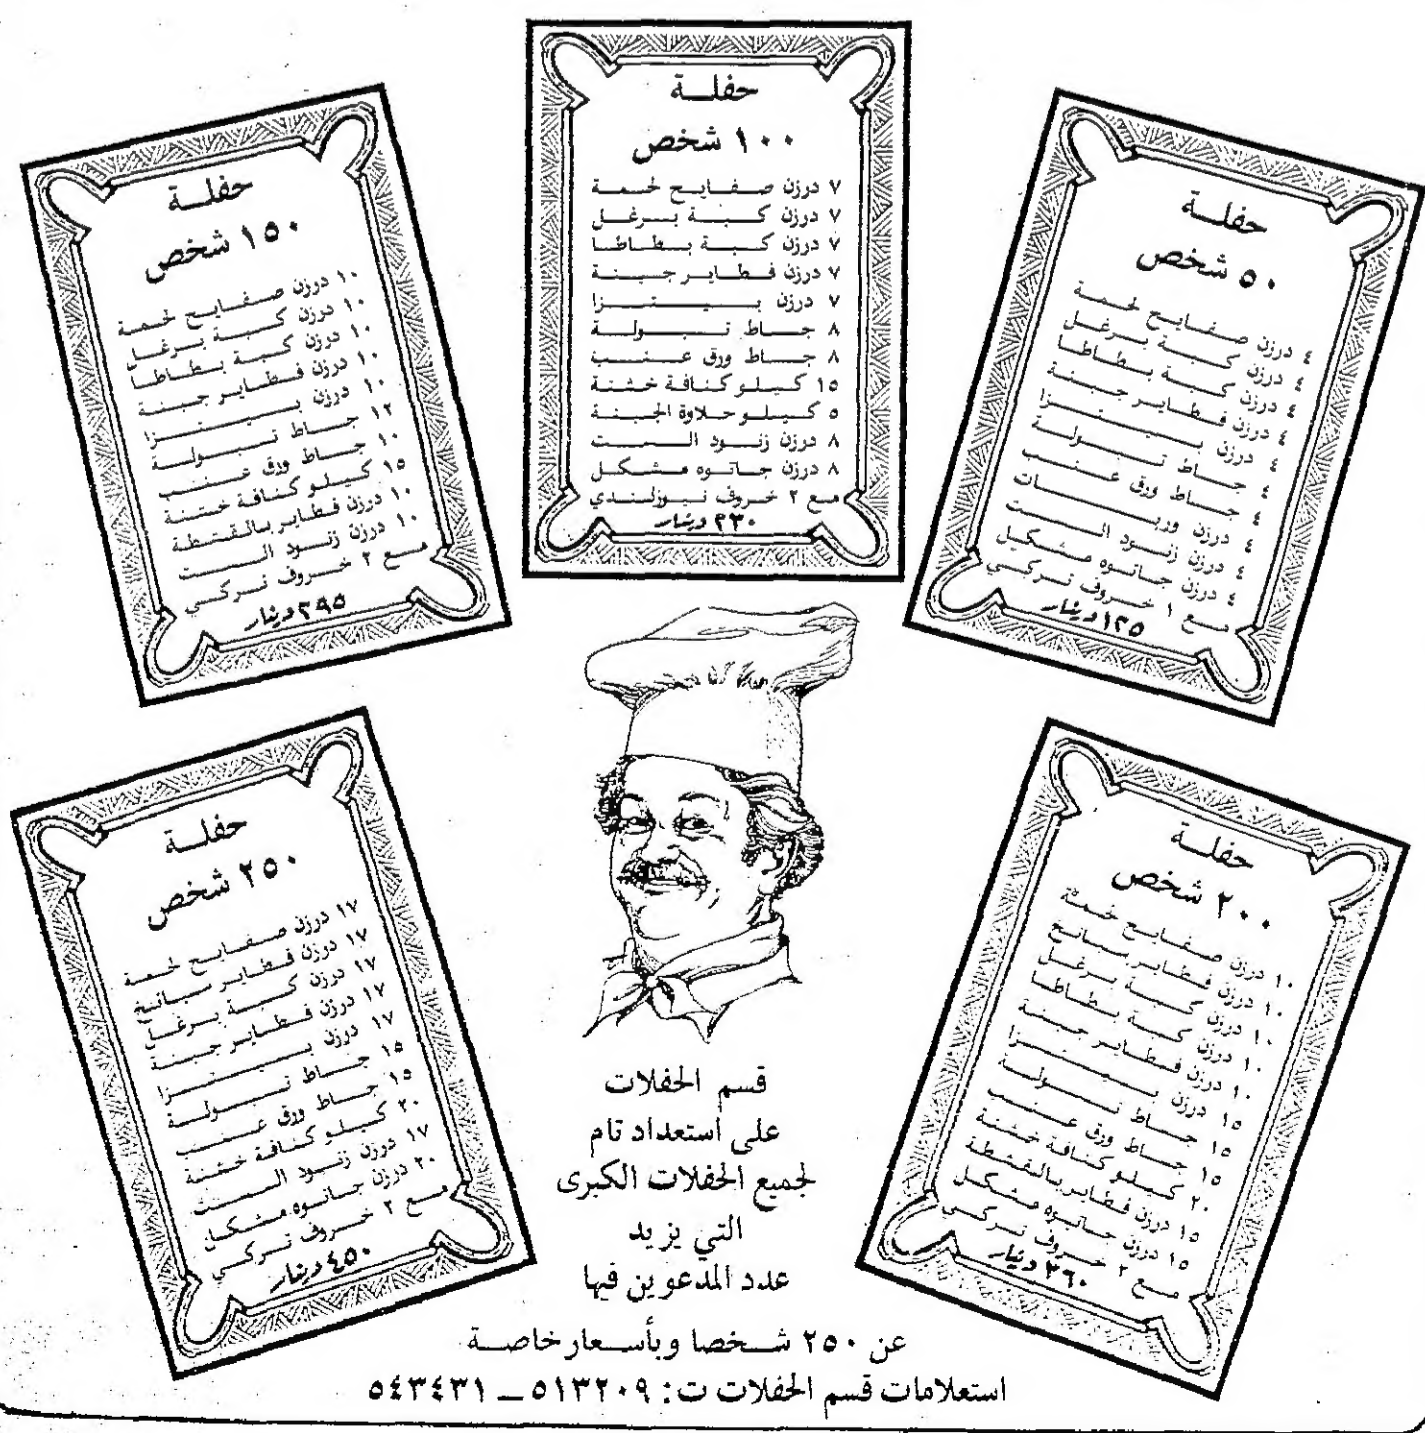 حفلة
٥٠ شخص
٤ درزن صفايح لحمة
٤ درزن كبة برغل
٤ درزن كبة بطاطا
٤ درزن فطاير جبنة
٤ درزن بيتزا
٤ جاط تبولة
٤ جاط ورق عنب
٤ درزن وربات
٤ درزن زنود الست
٤ درزن جاتوه مشكيل
مع ١ خروف تركي
١٢٥ دينار
حفلة
١٠٠ شخص
٧ درزن صفايح لحمة
٧ درزن كبة برغل
٧ درزن كبة بطاطا
٧ درزن فطاير جبنة
٧ درزن بيتزا
٨ جاط تبولة
٨ جاط ورق عنب
١٥ كيلو كنافة خشنة
٥ كيلو حلاوة الجبنة
٨ درزن زنود الست
٨ درزن جاتوه مشكل
مع ٢ خروف نيوزلندي
٢٣٠ دينار
حفلة
١٥٠ شخص
١٠ درزن صفايح لحمة
١٠ درزن كبة برغل
١٠ درزن كبة بطاطا
١٠ درزن فطاير جبنة
١٠ درزن بيتزا
١٢ جاط تبولة
١٠ جاط ورق عنب
١٥ كيلو كنافة خشنة
١٠ درزن فطاير بالقشطة
١٠ درزن زنود الست
مع ٢ خروف تركي
٢٩٥ دينار
حفلة
٢٠٠ شخص
١٠ درزن صفايح لحمة
١٠ درزن فطاير سبانخ
١٠ درزن كبة برغل
١٠ درزن كبة بطاطا
١٠ درزن فطاير جبنة
١٥ درزن بيتزا
١٥ جاط تبولة
١٥ جاط ورق عنب
٢٠ كيلو كنافة خشنة
١٥ درزن فطاير بالقشطة
١٥ درزن جاتوه مشكل
مع ٢ خروف تركي
٣٦٠ دينار
حفلة
٢٥٠ شخص
١٧ درزن صفايح لحمة
١٧ درزن فطاير سبانخ
١٧ درزن كبة برغل
١٧ درزن فطاير جبنة
١٧ درزن بيتزا
١٥ جاط تبولة
١٥ جاط ورق عنب
٢٠ كيلو كنافة خشنة
١٧ درزن زنود الست
٢٠ درزن جاتوه مشكل
مع ٣ خروف تركي
٤٥٠ دينار
قسم الحفلات
على استعداد تام
لجميع الحفلات الكبرى
التي يزيد
عدد المدعوين فيها
عن ٢٥٠ شخصا وبأسعار خاصة
استعلامات قسم الحفلات ت: ٥١٣٢٠٩ ـ ٥٤٣٤٣١